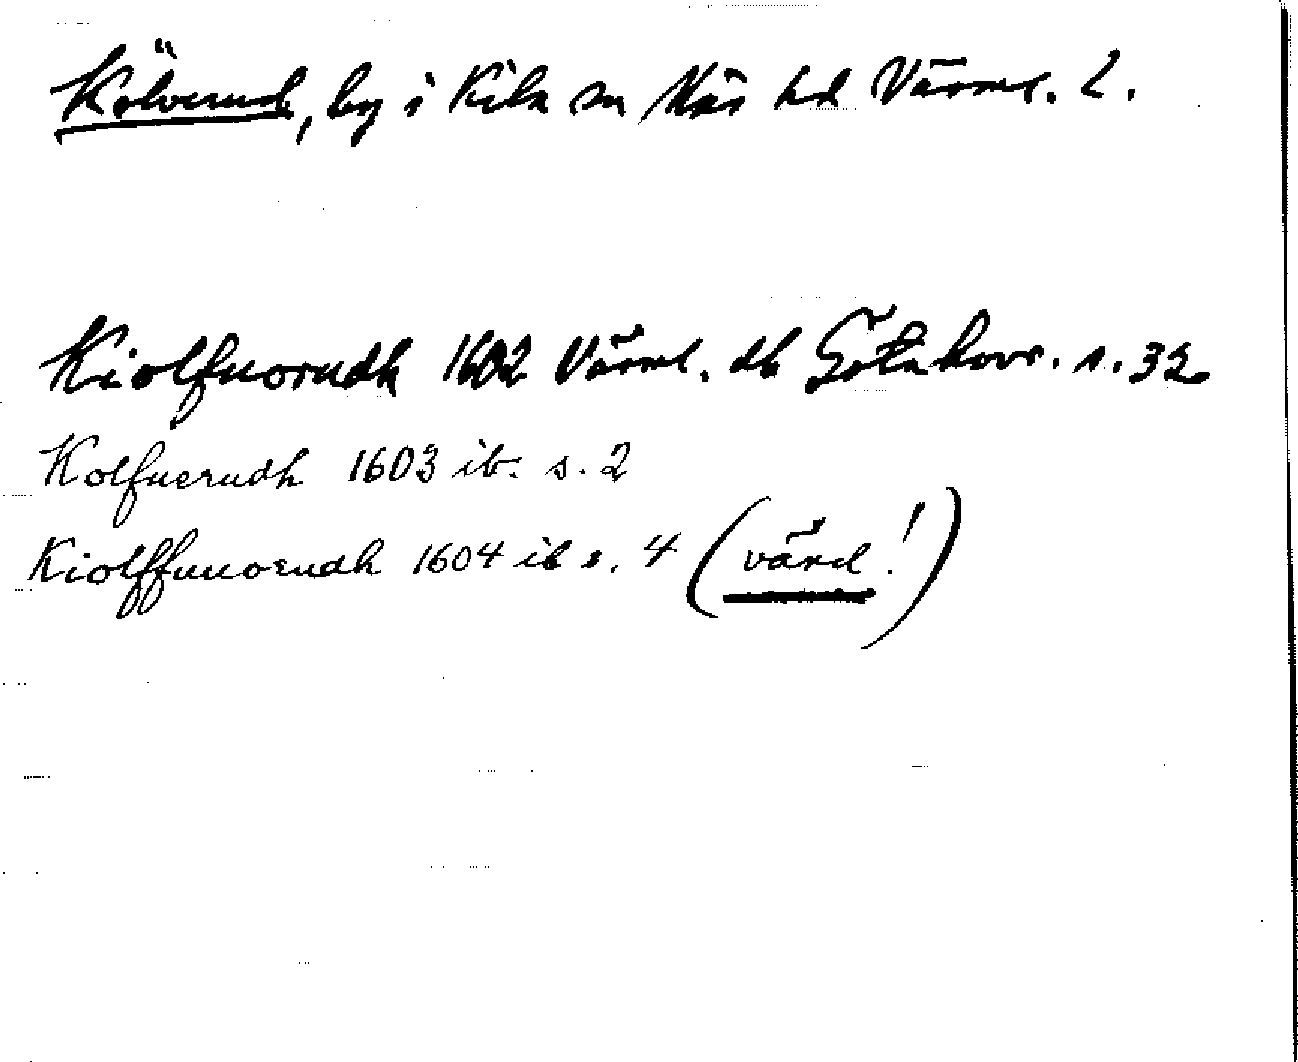 Kölverud, by i Kila sn Näs hd Värml. L.
Kiolfuorudh 1602 Värml. db Göta hovr. s. 32
Kolfuerudh 1603 ib. s. 2
Kiolffuuorudh 1604 ib s. 4 (värd!)